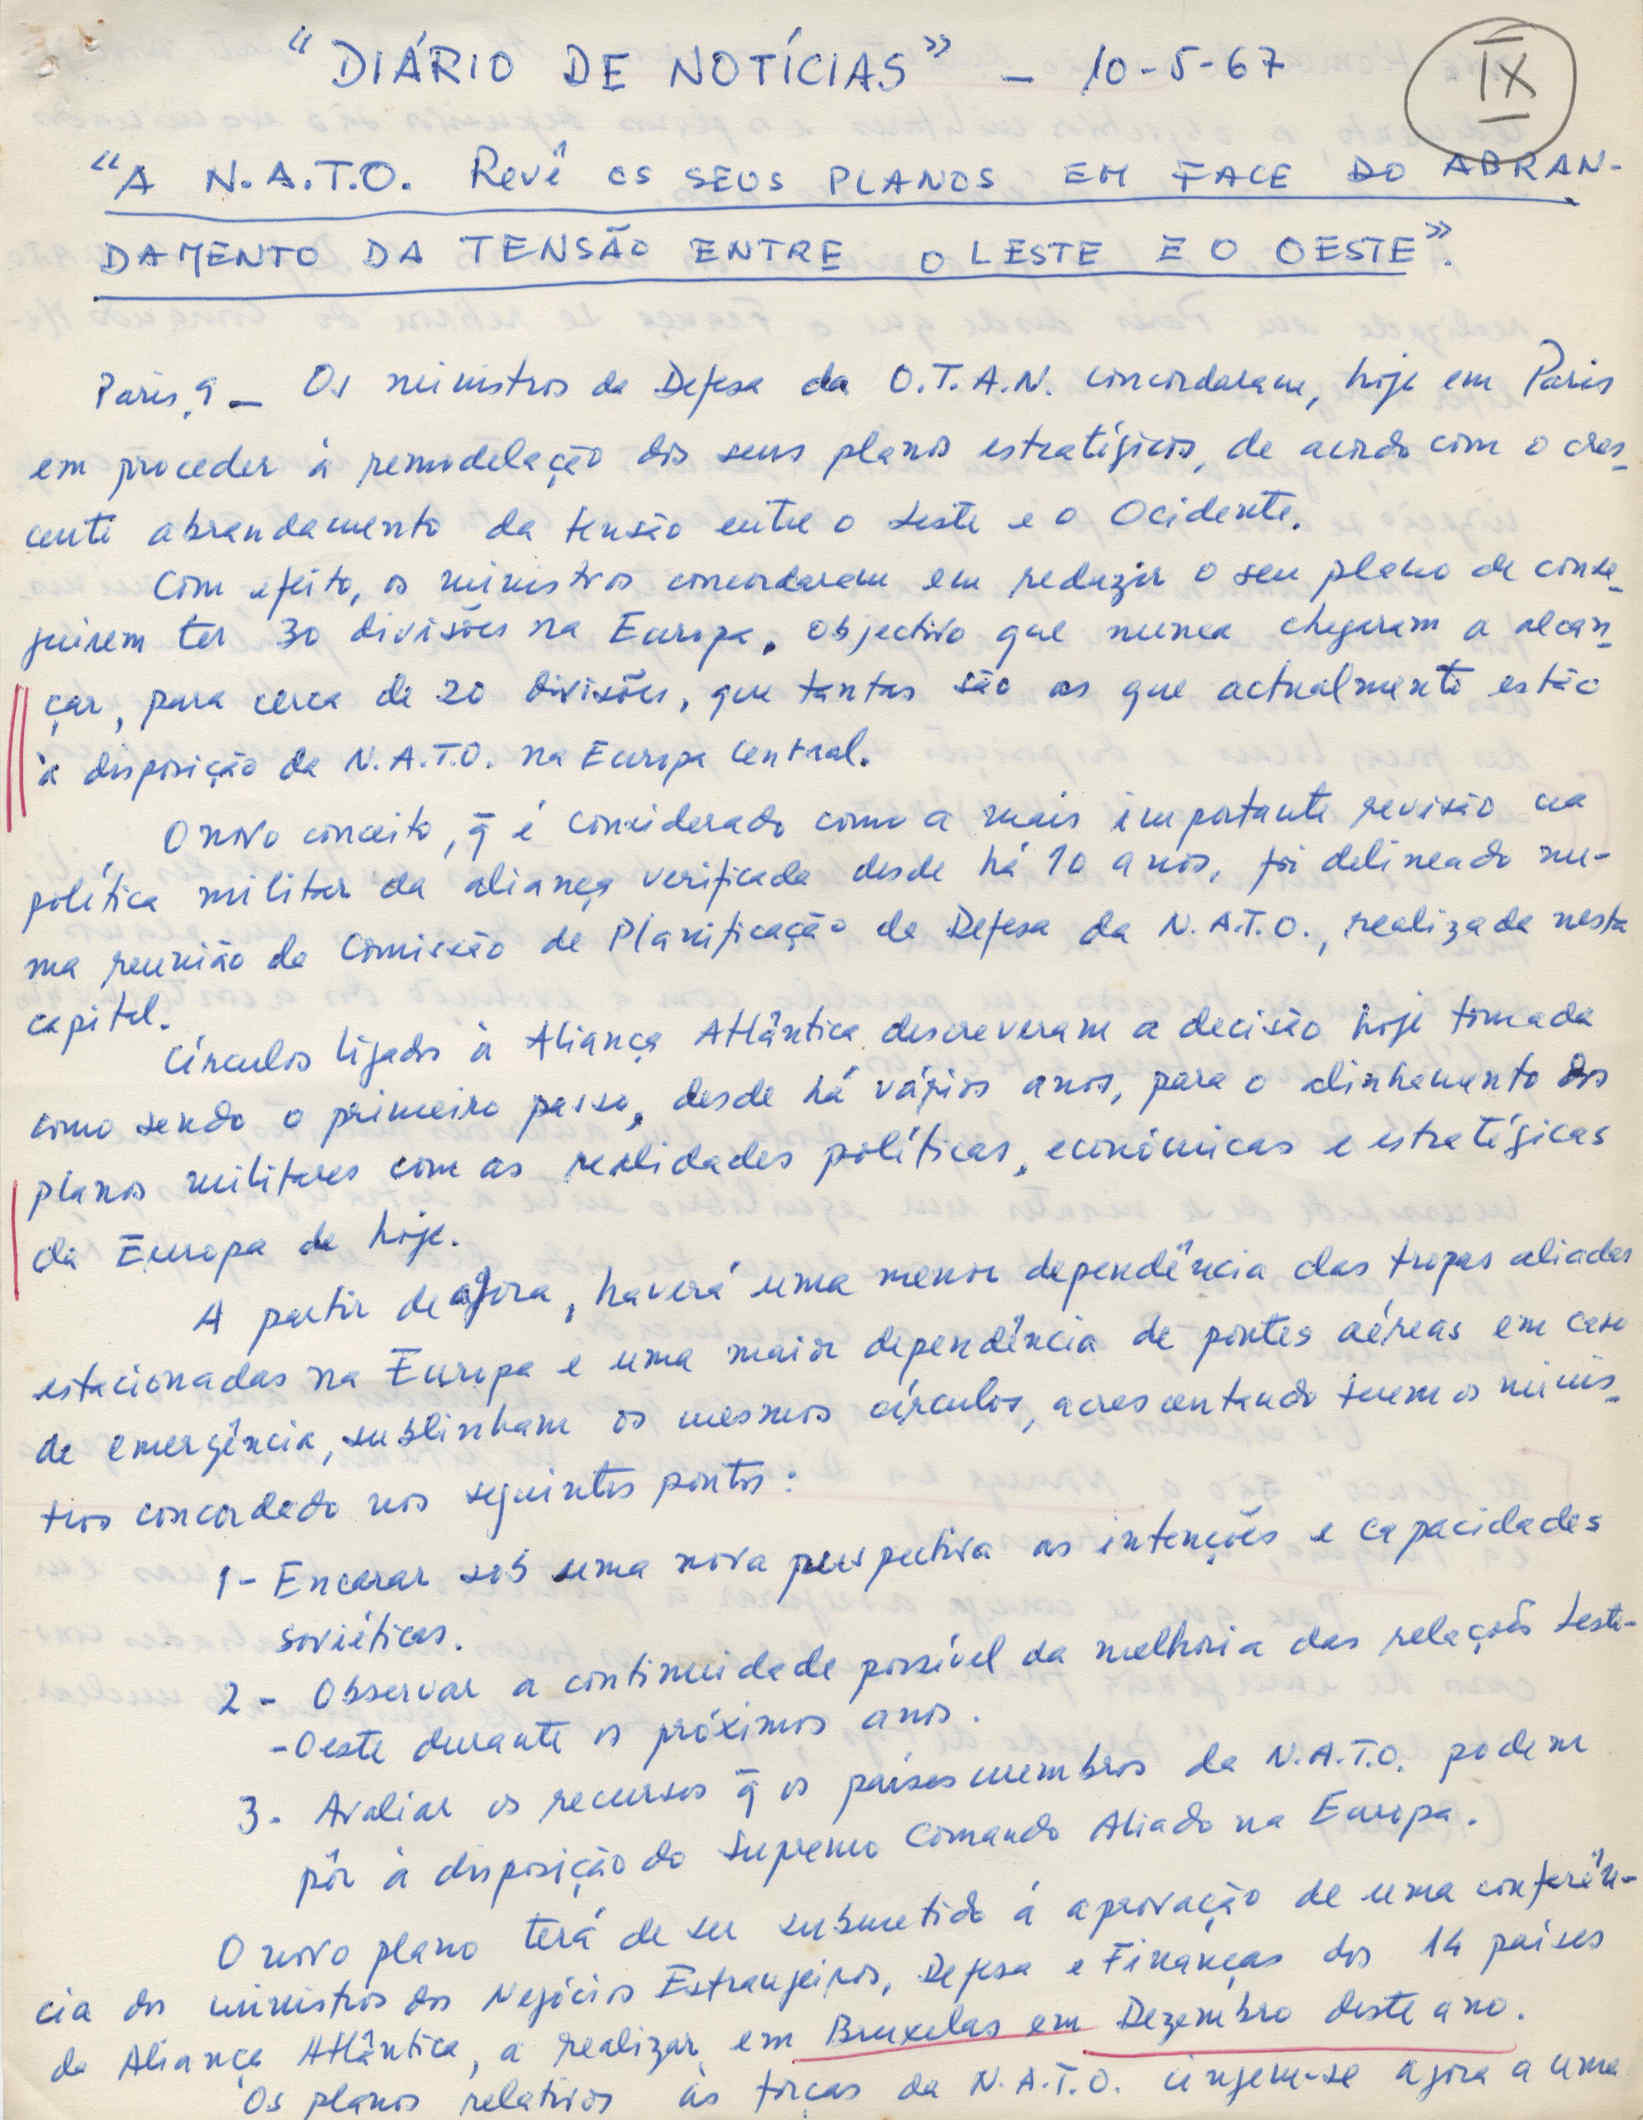 "DIÁRIO DE NOTÍCIAS" - 10-5-67
IX
"A N.A.T.O. Revê os SEUS PLANOS EM FACE DO ABRAN-
DAMENTO DA TENSÃO ENTRE O LESTE E O OESTE".
Paris, 9 - Os ministros da Defesa da O.T.A.N. concordaram, hoje em Paris
em proceder à remodelação dos seus planos estratégicos, de acordo com o cres-
cente abrandamento da tensão entre o Leste e o Ocidente.
Com efeito, os ministros concordaram em reduzir o seu plano de conse-
guirem ter 30 divisões na Europa, objectivo que nunca chegaram a alcan-
çar, para cerca de 20 divisões, que tantas são as que actualmente estão
à disposição da N.A.T.O. na Europa Central.
O novo conceito, q̄ é considerado como a mais importante revisão na
política militar da aliança verificada desde há 10 anos, foi delineado nu-
ma reunião da Comissão de Planificação da Defesa da N.A.T.O., realizada nesta
capital.
Círculos ligados à Aliança Atlântica descreveram a decisão hoje tomada
como sendo o primeiro passo, desde há vários anos, para o alinhamento dos
planos militares com as realidades políticas, económicas e estratégicas
da Europa de hoje.
A partir de agora, haverá uma menor dependência das tropas aliadas
estacionadas na Europa e uma maior dependência de pontes aéreas em caso
de emergência, sublinham os mesmos círculos, acrescentando terem os minis-
tros concordado nos seguintes pontos:
1- Encarar sob uma nova perspectiva as intenções e capacidades
soviéticas.
2- Observar a continuidade possível da melhoria das relações Leste-
-Oeste durante os próximos anos.
3- Avaliar os recursos q̄ os países membros da N.A.T.O. podem
pôr à disposição do Supremo Comando Aliado na Europa.
O novo plano terá de ser submetido à aprovação de uma conferên-
cia dos ministros dos Negócios Estrangeiros, Defesa e Finanças dos 14 países
da Aliança Atlântica, a realizar em Bruxelas em Dezembro deste ano.
Os planos relativos às forças da N.A.T.O. cingem-se agora a uma